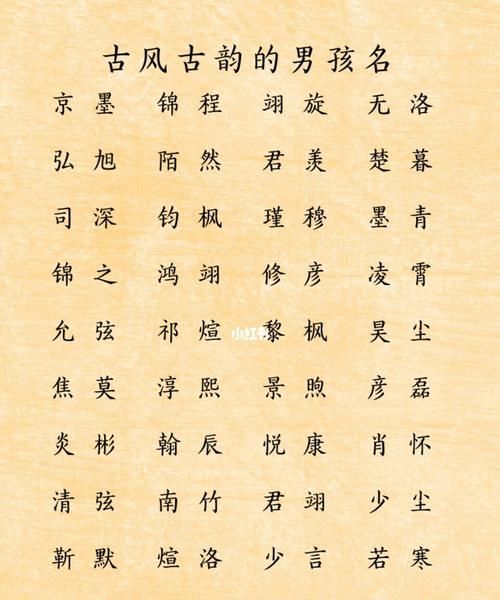 古风古韵的男孩名
京墨 锦程 翊旋 无洛
弘旭 陌然 君羡 楚暮
司深 钧枫 瑾穆 墨青
锦之 鸿翊 修彦 凌霄
允弦 祁煊 黎枫 昊尘
小红书
焦莫 淳熙 景煦 彦磊
炎彬 翰辰 悦康 肖怀
清弦 南竹 君翊 少尘
靳默 煊洛 少言 若寒